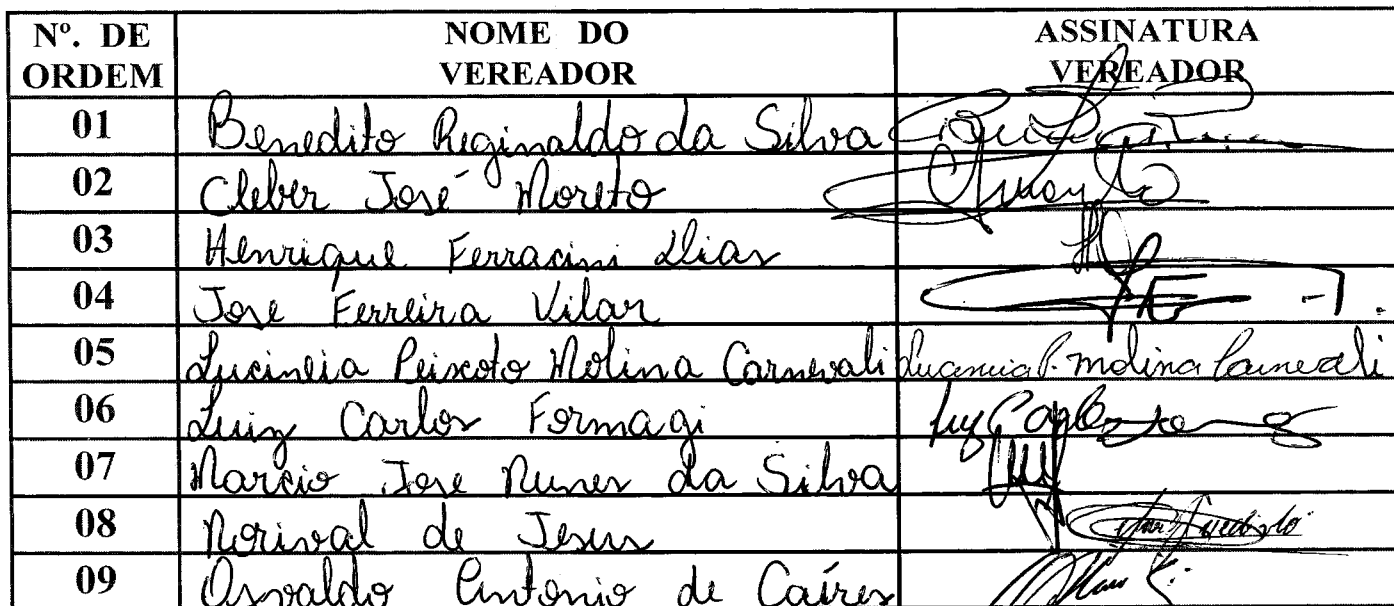 Nº. DE ORDEM NOME DO VEREADOR ASSINATURA VEREADOR
01 Benedito Reginaldo da Silva
02 Cleber José Moreto
03 Henrique Ferracini Dias
04 Jose Ferreira Vilar
05 Lucineia Peixoto Molina Carnevali Lucineia P. Molina Carnevali
06 Luiz Carlos Formagi
07 Marcio Jose Nunes da Silva
08 Norival de Jesus
09 Osvaldo Antonio de Caíres